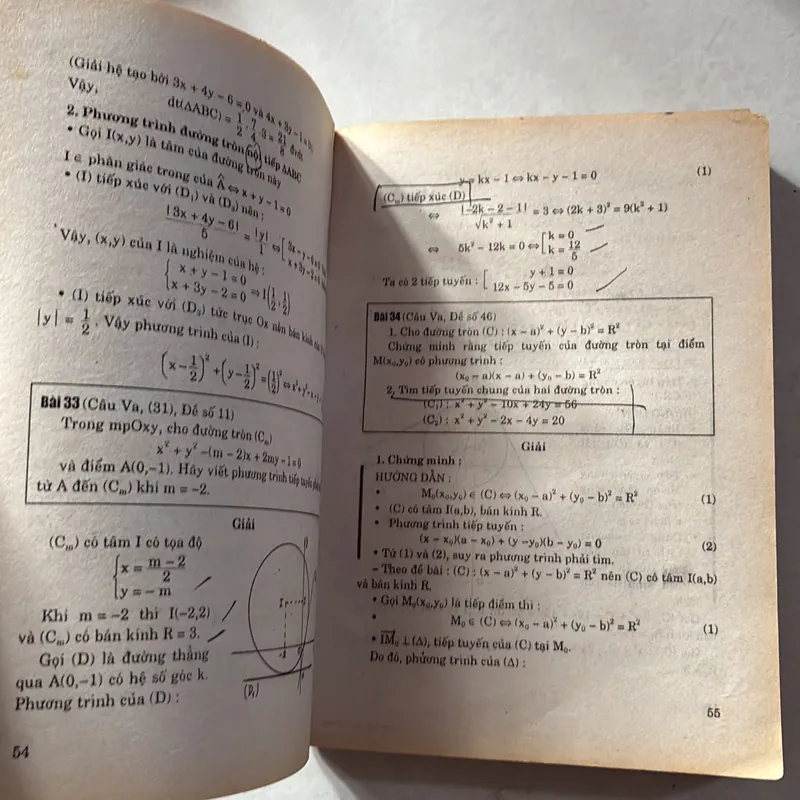 (Giải hệ tạo bởi 3x + 4y – 6 = 0 và 4x + 3y – 1 = 0)
Vậy, dt(ΔABC) = 1/2 . 7/4 . 3 = 21/8 đvdt
2. Phương trình đường tròn nội tiếp ΔABC
• Gọi I(x,y) là tâm của đường tròn này
I ∈ phân giác trong của Â ⇔ x + y – 1 = 0
• (I) tiếp xúc với (D₁) và (D₃) nên :
|3x + 4y – 6|/5 = |y|/1 ⇔ [3x – y – 6 = 0
x + 3y – 2 = 0
Vậy, (x,y) của I là nghiệm của hệ :
{x + y – 1 = 0
x + 3y – 2 = 0 ⇒ I(1/2, 1/2)
• (I) tiếp xúc với (D₃) tức trục Ox nên bán kính
|y| = 1/2. Vậy phương trình của (I) :
(x – 1/2)² + (y – 1/2)² = (1/2)² ⇔ x² + y²
Bài 33 (Câu Va, (31), Đề số 11)
Trong mpOxy, cho đường tròn (Cₘ)
x² + y² –(m – 2)x + 2my –1 = 0
và điểm A(0,–1). Hãy viết phương trình tiếp tuyến
từ A đến (Cₘ) khi m = –2.
Giải
(Cₘ) có tâm I có tọa độ
{x = (m – 2)/2
y = – m
Khi m = –2 thì I(–2,2)
và (Cₘ) có bán kính R = 3.
Gọi (D) là đường thẳng
qua A(0,–1) có hệ số góc k.
Phương trình của (D) :
I
(D₁)
54
y = kx – 1 ⇔ kx – y – 1 = 0 (1)
(Cₘ) tiếp xúc (D)
⇔ |–2k – 2 – 1|/√(k² + 1) = 3 ⇔ (2k + 3)² = 9(k² + 1)
⇔ 5k² – 12k = 0 ⇔ [k = 0
k = 12/5
Ta có 2 tiếp tuyến : [y + 1 = 0
12x – 5y – 5 = 0
Bài 34 (Câu Va, Đề số 46)
1. Cho đường tròn (C) : (x – a)² + (y – b)² = R²
Chứng minh rằng tiếp tuyến của đường tròn tại điểm
M(x₀,y₀) có phương trình :
(x₀ – a)(x – a) + (y₀ – b) = R²
2. Tìm tiếp tuyến chung của hai đường tròn :
(C₁) : x² + y² – 10x + 24y = 56
(C₂) : x² + y² – 2x – 4y = 20
Giải
1. Chứng minh :
HƯỚNG DẪN :
• M₀(x₀,y₀) ∈ (C) ⇔ (x₀ – a)² + (y₀ – b)² = R² (1)
• (C) có tâm I(a,b), bán kính R.
• Phương trình tiếp tuyến :
(x – x₀)(a – x₀) + (y – y₀)(b – y₀) = 0 (2)
• Từ (1) và (2), suy ra phương trình phải tìm.
– Theo đề bài : (C) : (x – a)² + (y – b)² = R² nên (C) có tâm I(a,b)
và bán kính R.
• Gọi M₀(x₀,y₀) là tiếp điểm thì :
• M₀ ∈ (C) ⇔ (x₀ – a)² + (y₀ – b)² = R² (1)
• IM₀ ⊥ (Δ), tiếp tuyến của (C) tại M₀.
Do đó, phương trình của (Δ) :
55